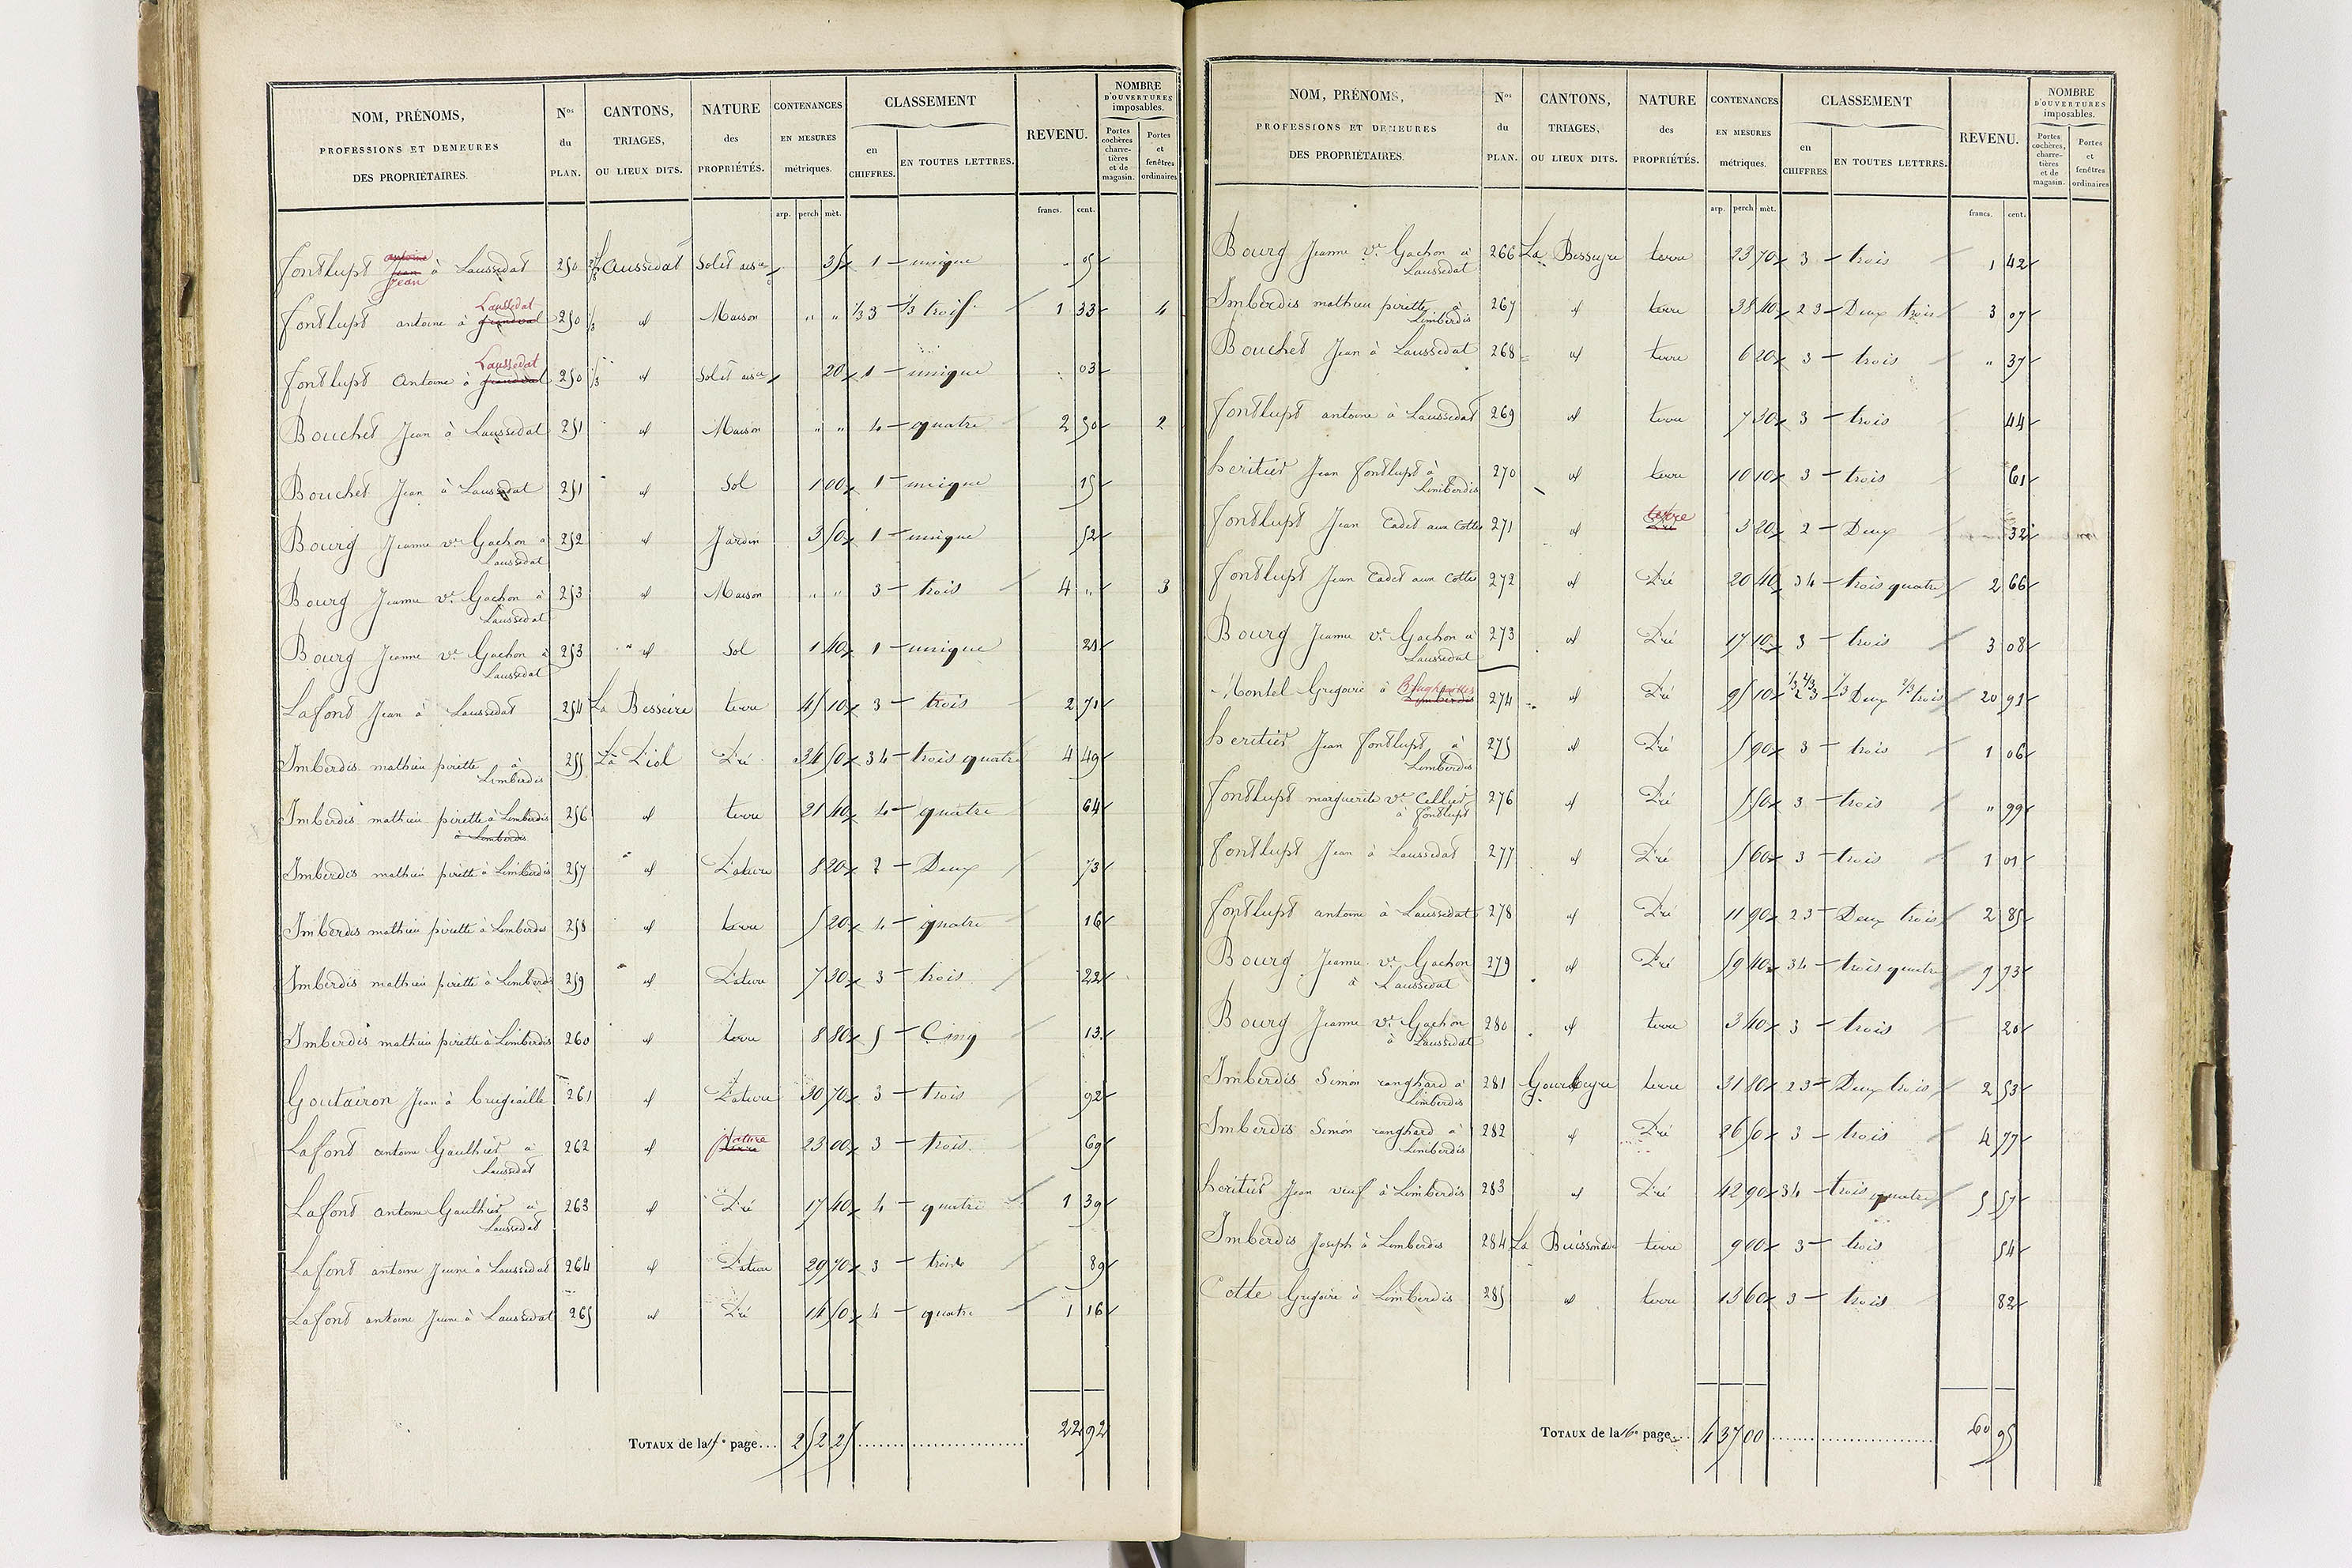 NOM, PRÉNOMS, PROFESSIONS ET DEMEURES DES PROPRIÉTAIRES. Nos du PLAN. CANTONS, TRIAGES, OU LIEUX DITS. NATURE des PROPRIÉTÉS. CONTENANCES EN MESURES métriques. CLASSEMENT en CHIFFRES. EN TOUTES LETTRES. REVENU. NOMBRE D'OUVERTURES imposables. Portes cochères, charretières et de magasin. Portes et fenêtres ordinaires
arp. perch mèt. francs. cent.
fontlupt antoine Jean Jean à Laussedat 250 2/3 Laussedat Sol et 35 1 unique 05
fontlupt antoine à grandval Laussedat 250 1/3 id Maison " " 1/3 3 1/3 trois 1 33 4
fontlupt antoine à grandval Laussedat 250 1/3 id Sol et 20 1 unique 03
Bouchet Jean à Laussedat 251 id Maison " " 4 quatre 2 50 2
Bouchet Jean à Laussedat 251 id Sol 1 00 1 unique 15
Bourg Jeanne ve Gachon à Laussedat 252 id Jardin 3 50 1 unique 52
Bourg Jeanne ve Gachon à Laussedat 253 id Maison " " 3 trois 4 " 3
Bourg Jeanne ve Gachon à Laussedat 253 id Sol 1 40 1 unique 21
Lafont Jean à Laussedat 254 La Besseire terre 45 10 3 trois 2 71
Imberdis mathieu pirette à Limberdis 255 La Liol Pré 34 50 3 4 trois quatre 4 49
Imberdis mathieu pirette à Limberdis à Limberdis 256 id terre 21 40 4 quatre 64
Imberdis mathieu pirette à Limberdis 257 id Pature 8 20 2 Deux 73
Imberdis mathieu pirette à Limberdis 258 id terre 5 20 4 quatre 16
Imberdis mathieu pirette à Limberdis 259 id Pature 7 30 3 trois 22
Imberdis mathieu pirette à Limberdis 260 id terre 8 80 5 Cinq 13
Goutairon Jean à brugiaille 261 id Pature 30 70 3 trois 92
Lafont antoine Gaulhier à Laussedat 262 id pature 23 00 3 trois 69
Lafont antoine Gaulhier à Laussedat 263 id Pré 17 40 4 quatre 1 39
Lafont antoine Jeune à Laussedat 264 id Pature 29 70 3 trois 89
Lafont antoine Jeune à Laussedat 265 id Pré 14 50 4 quatre 1 16
TOTAUX de la 15e page... 2 52 25 22 92
NOM, PRÉNOMS, PROFESSIONS ET DEMEURES DES PROPRIÉTAIRES. Nos du PLAN. CANTONS, TRIAGES, OU LIEUX DITS. NATURE des PROPRIÉTÉS. CONTENANCES EN MESURES métriques. CLASSEMENT en CHIFFRES. EN TOUTES LETTRES. REVENU. NOMBRE D'OUVERTURES imposables. Portes cochères, charretières et de magasin. Portes et fenêtres ordinaires
arp. perch mèt. francs. cent.
Bourg Jeanne ve Gachon à Laussedat 266 La Besseyre terre 23 70 3 trois 1 42
Imberdis mathieu pirette à Limberdis 267 id terre 38 40 2 3 Deux trois 3 07
Bouchet Jean à Laussedat 268 id terre 6 20 3 trois " 37
fontlupt antoine à Laussedat 269 id terre 7 30 3 trois 44
heritier Jean fontlupt à Limberdis 270 id terre 10 10 3 trois 61
fontlupt Jean Cadet aux Cottes 271 id terre Pré 3 20 2 Deux 32
fontlupt Jean Cadet aux Cottes 272 id Pré 20 40 3 4 trois quatre 2 66
Bourg Jeanne ve Gachon à Laussedat 273 id Pré 17 10 3 trois 3 08
Montel Gregoire à Limberdis 274 id Pré 95 10 1/3 2/3 2 3 1/3 Deux 2/3 trois 20 91
heritier Jean fontlupt à Limberdis 275 id Pré 5 90 3 trois 1 06
fontlupt marguerite ve Cellier à fontlupt 276 id Pré 5 50 3 trois " 99
fontlupt Jean à Laussedat 277 id Pré 5 60 3 trois 1 01
fontlupt antoine à Laussedat 278 id Pré 11 90 2 3 Deux trois 2 85
Bourg Jeanne ve Gachon à Laussedat 279 id Pré 59 40 3 4 trois quatre 7 73
Bourg Jeanne ve Gachon à Laussedat 280 id terre 3 40 3 trois 20
Imberdis Simon ranghard à Limberdis 281 Gourbeyre terre 31 80 2 3 Deux trois 2 53
Imberdis Simon ranghard à Limberdis 282 id Pré 26 50 3 trois 4 77
heritier Jean veuf à Limberdis 283 id Pré 42 90 3 4 trois quatre 5 57
Imberdis Joseph à Limberdis 284 La terre 9 00 3 trois 54
Cotte Gregoire à Limberdis 285 id terre 13 60 3 trois 82
TOTAUX de la 16e page... 4 37 00 60 95